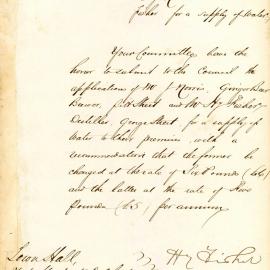 Fisher for a supply of Water
Your Committee have the
honor to submit to the Council the
application of Mr J. Morris, Ginger Beer
Brewer, Street and Mr H. Fisher
Distiller George Street for a supply of
water to their premises with a
recommendation that the former be
charged at the rate of Six Pounds (£6)
and the latter at the rate of Five
Pounds (£5) per annum
Town Hall,
H Fisher